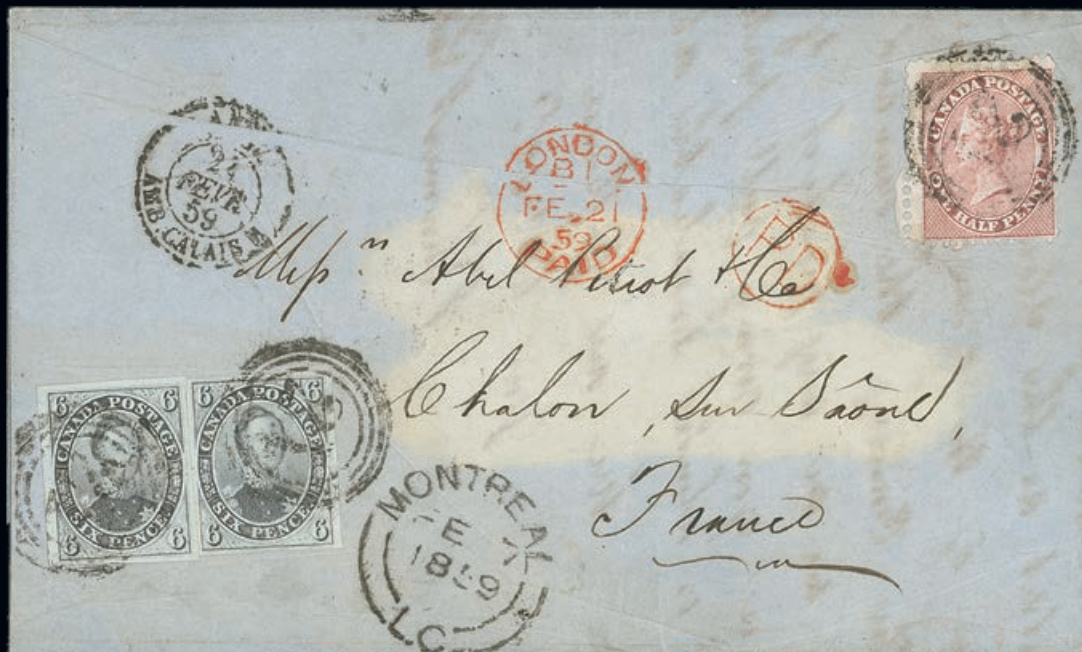 24
FEVR
59
AMB. CALAIS
LONDON
B 1
FE 21
59
PAID
PD
CANADA POSTAGE
HALF PENNY
Abel Pisiot & Co
Chalon sur Saône,
France
6 6
CANADA POSTAGE
SIX PENCE
6 6
6 6
CANADA POSTAGE
SIX PENCE
6 6
MONTREAL
FE
1859
L.C